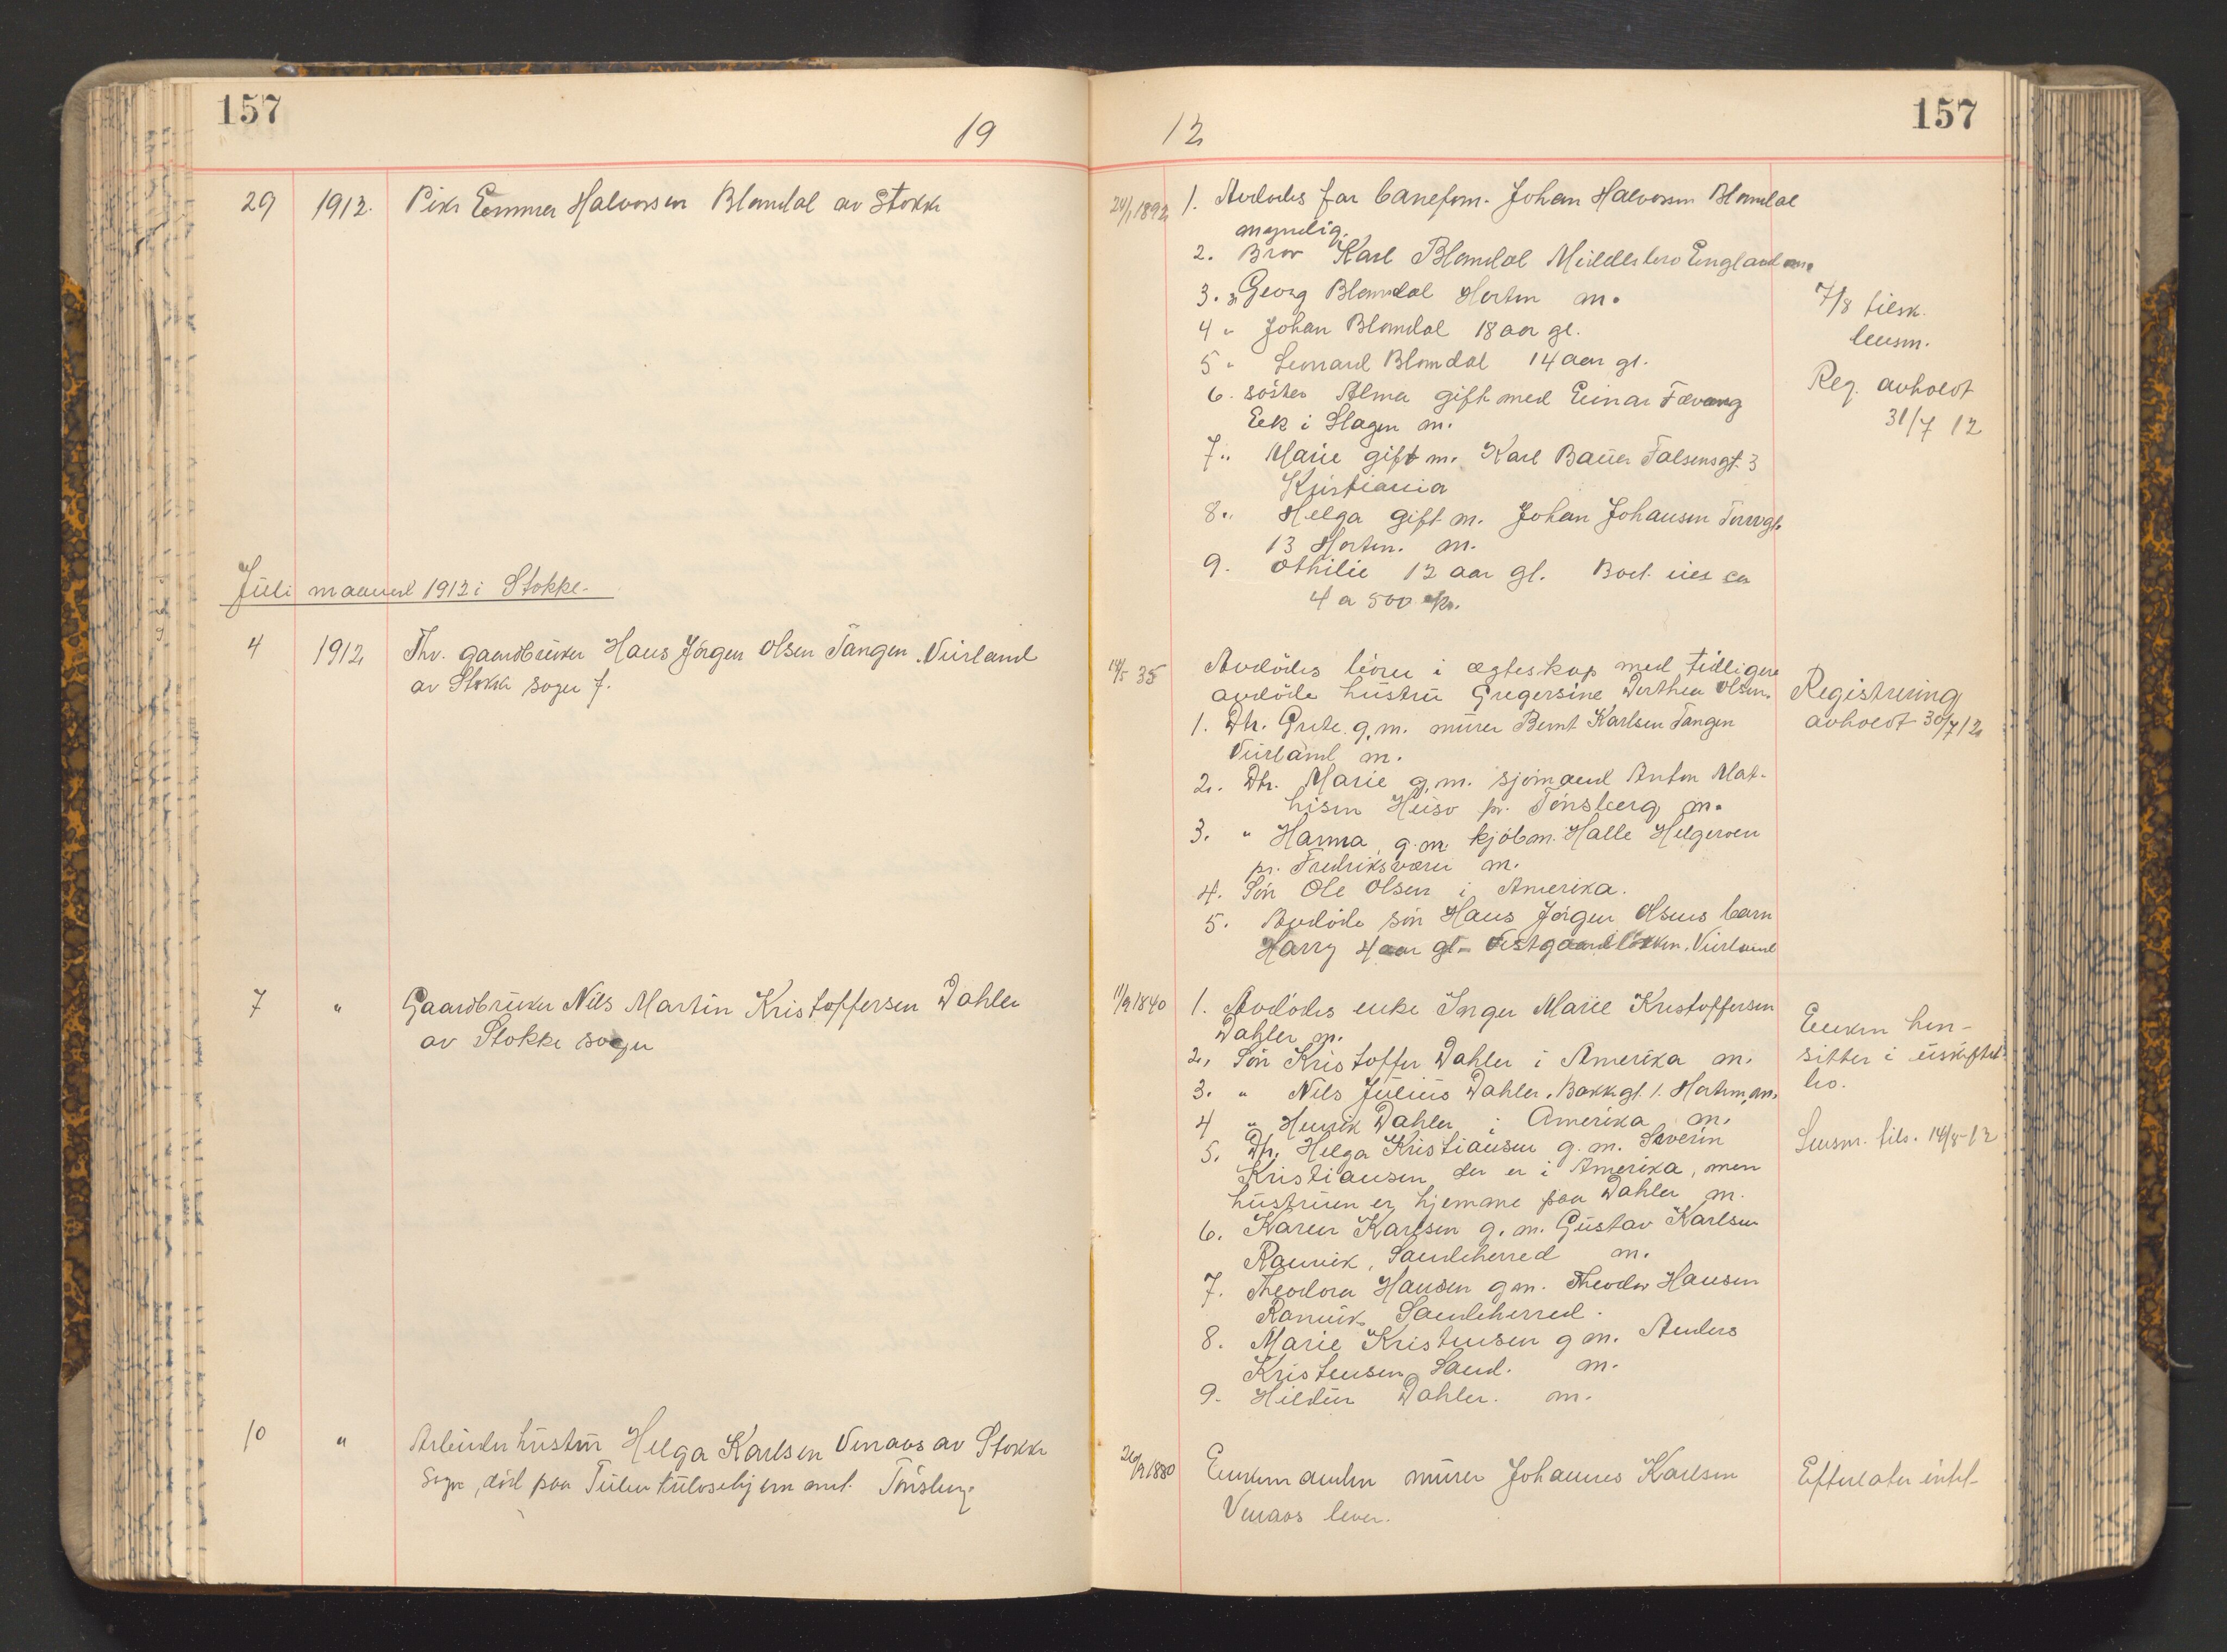 157
19
29 1912. Pike Emma Halvorsen Blomdal av Stokke
Juli maaned 1912 i Stokke.
4 1912 Fhv. gaardbruker Hans Jörgen Olsen Tangen, Vuirland
av Stokke sogn f.
7 " Gaardbruker Nils Martin Kristoffersen Dahler
av Stokke sogn
10 " Arbeider hustru Helga Karlsen Venaas av Stokke
Sogn, död paa Tuberkulosehjem amt. Tönsberg
12
157
24/1 1892 1. Avdödes far banefom. Johan Halvorsen Blomdal
myndig.
2. Bror Karl Blomdal Middlesbro England m.
3. " Georg Blomdal Horten m.
4 " Johan Blomdal 18 aar gl.
5 " Leonard Blomdal 14 aar gl.
6. söster Alma gift med Einar Fævang
Eek i Slagen m.
7 " Marie gift m. Karl Bauer Falsensgt. 3
Kristiania
8 " Helga gift m. Johan Johansen Torvgt.
13 Horten. m.
9. Othilie 12 aar gl. Boet ca
4 a 500 kr.
7/8 tilsk.
lensm.
Reg. avholdt
31/7 12
14/5 35 Avdödes i ægteskap med tidligere
avdöde hustru Gregersine Dorthea Olsen.
1. Dtr. Grete g.m. murer Bernt Karlsen Tangen
Vuirland m.
2. Dtr. Marie g.m. sjömand Anton Mat-
hisen Husö pr. Tönsberg m.
3. " Hanna g.m. kjöbm. Halle Helgeroen
pr. Fredriksværn m.
4. Sön Ole Olsen i Amerika.
5. Avdöde sön Hans Jörgen Olsens barn
Harry 4 aar gl. Vestgaardlökken, Vuirland
Registrering
avholdt 30/7 12
11/9 1840 1. Avdödes enke Inger Marie Kristoffersen
Dahler m.
2. Sön Kristoffer Dahler i Amerika m.
3. " Nils Julius Dahler, Bakkegt. 1. Horten, m.
4 " Henrik Dahler i Amerika m.
5. Dtr. Helga Kristiansen g.m. Severin
Kristiansen der er i Amerika, men
hustruen er hjemme paa Dahler m.
6. Karen Karlsen g.m. Gustav Karlsen
Ranvik, Sandeherred m.
7. Theodora Hansen g.m. Theodor Hansen
Ranvik Sandeherred.
8. Marie Kristensen g.m. Anders
Kristensen Sand. m.
9. Hildur Dahler. m.
Enken hen-
sitter i uskiftet
bo.
Lensm. tils. 14/8-12
26/9 1880 Enkemanden murer Johannes Karlsen
Venaas lever.
Efterlater intet